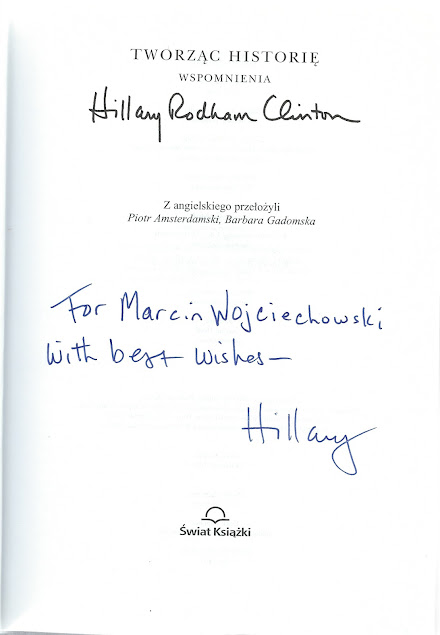 TWORZĄC HISTORIĘ
WSPOMNIENIA
Hillary Rodham Clinton
Z angielskiego przełożyli
Piotr Amsterdamski, Barbara Gadomska
For Marcin Wojciechowski
With best wishes—
Hillary
Świat Książki